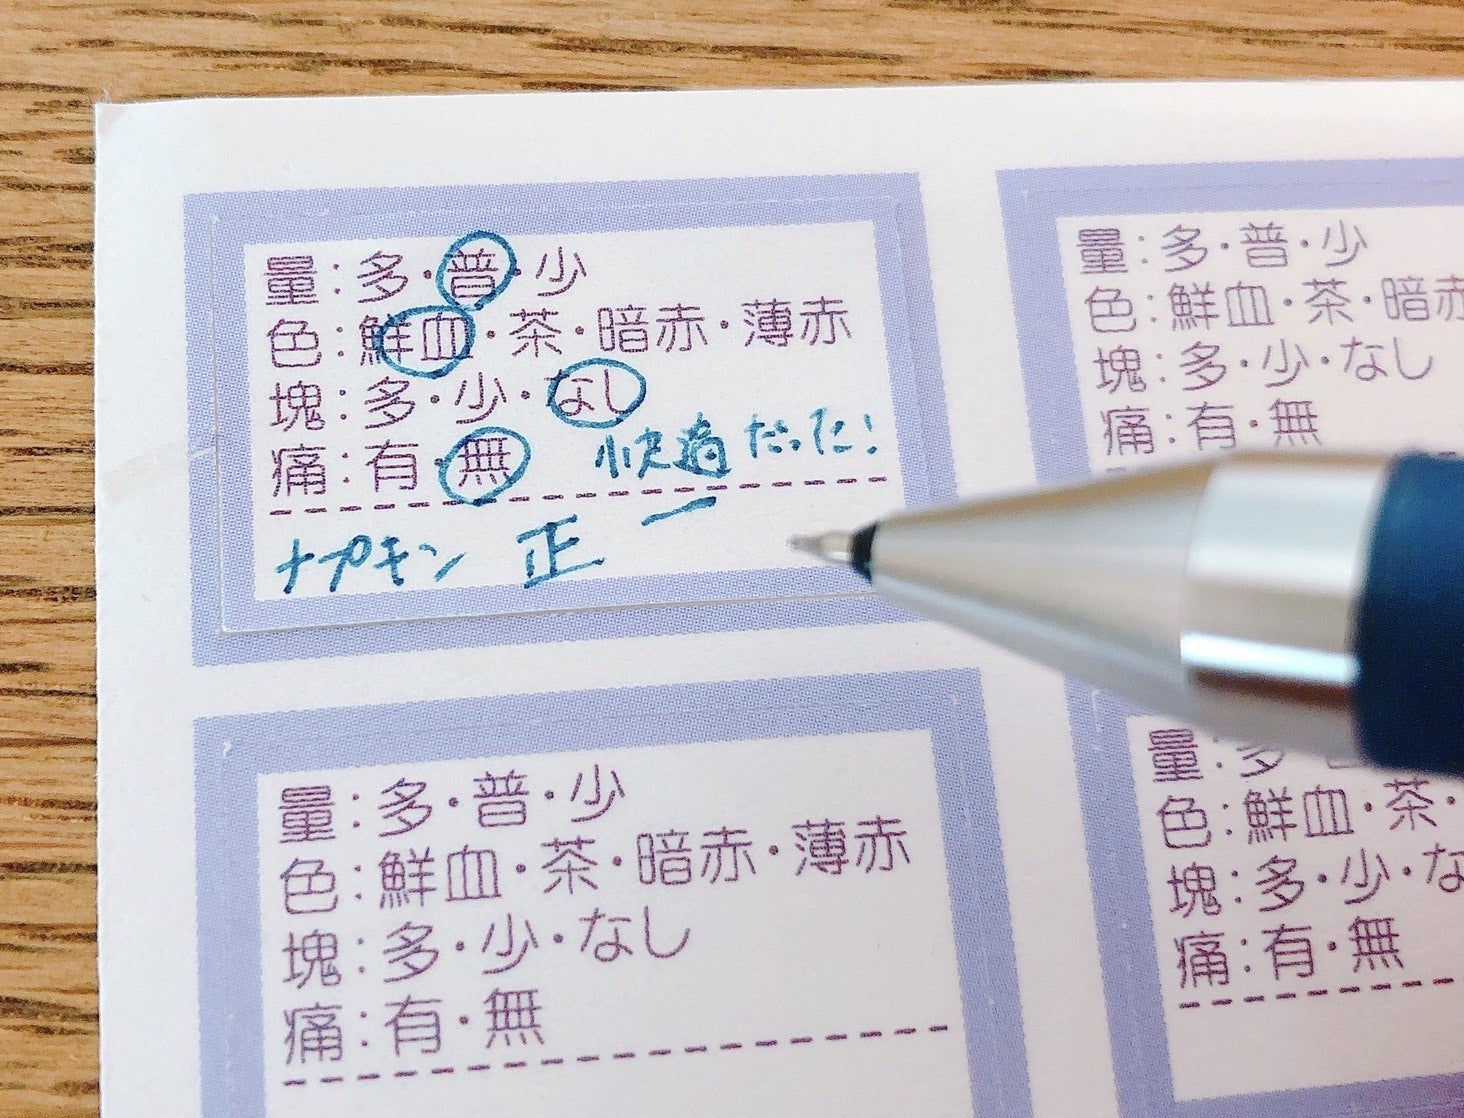 量:多・普・少
色:鮮血・茶・暗赤・薄赤
塊:多・少・なし
痛:有・無 快適だった!
ナプキン 正 一
量:多・普・少
色:鮮血・茶・暗赤
塊:多・少・なし
痛:有・無
量:多・普・少
色:鮮血・茶・暗赤・薄赤
塊:多・少・なし
痛:有・無
量:多・
色:鮮血・茶・
塊:多・少・な
痛:有・無